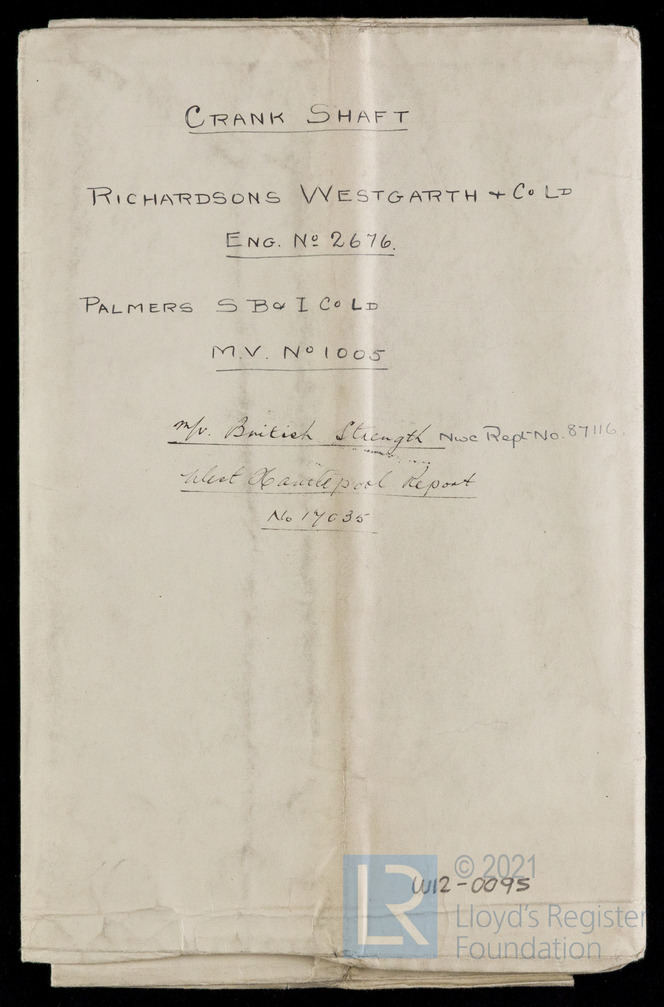 CRANK SHAFT
RICHARDSONS WESTGARTH + Co LD
ENG. No 2676.
PALMERS S B & I Co LD
M.V. No 1005
m/v. British Strength Nwc Rept No. 87116.
West Hartlepool Report
No 17035
© 2021
W12-0095
LR
Lloyd's Register
Foundation